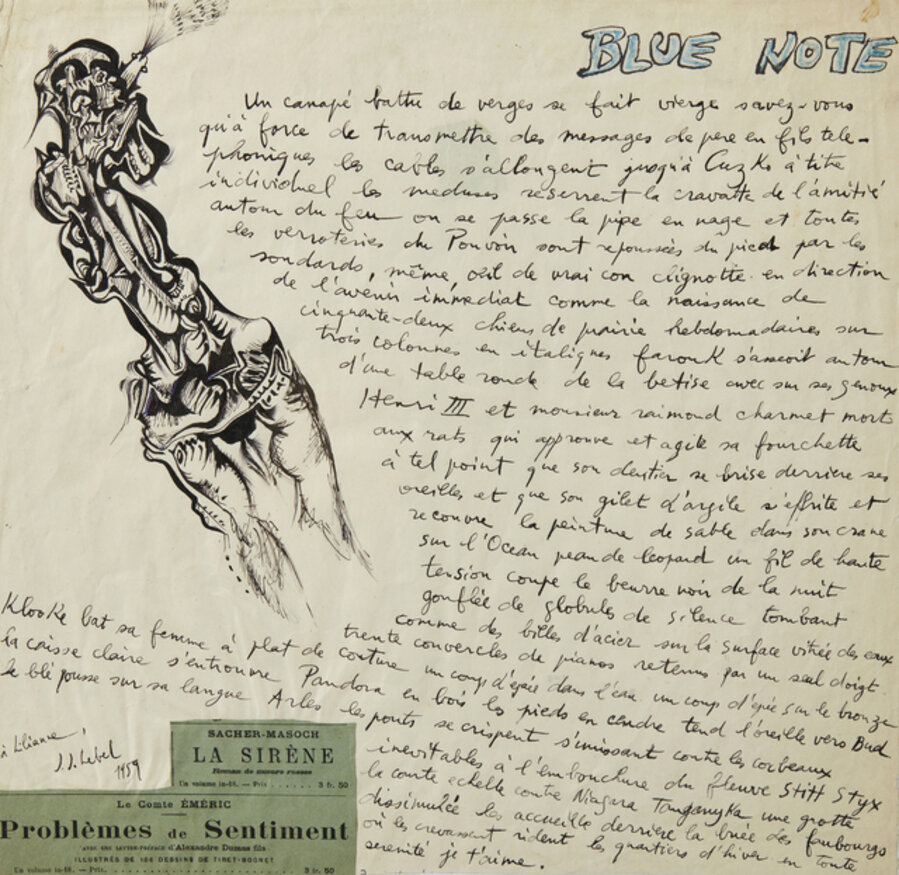 BLUE NOTE
Un canapé battu de verges se fait vierge savez-vous
qu'à force de transmettre des messages de pere en fils tele-
phoniques les cables s'allongent jusqu'à Cuzko à titre
individuel les meduses reserrent la cravatte de l'amitié
autour du feu on se passe la pipe en nage et toutes
les verroteries du Pouvoir sont repoussées du pied par les
soudards, même œil de vrai con clignotte en direction
de l'avenir immédiat comme la naissance de
cinquante-deux chiens de prairie hebdomadaires sur
trois colonnes en italiques farouk s'asseoit autour
d'une table ronde de la betise avec sur ses genoux
Henri III et monsieur raimond charmet morts
aux rats qui approuve et agite sa fourchette
à tel point que son dentier se brise derriere ses
oreilles et que son gilet d'argile s'effrite et
recouvre la peinture de sable dans son crane
sur l'Ocean peau de leopard un fil de haute
tension coupe le beurre noir de la nuit
gonflée de globules de silence tombant
comme des billes d'acier sur la surface vitrée des eaux
trente couvercles de pianos retenus par un seul doigt
Klooke bat sa femme à plat de couture un coup d'épée dans l'eau un coup d'épée sur le bronze
la caisse claire s'entrouvre Pandora en bois les pieds en cendre tend l'oreille vers Bud
le blé pousse sur sa langue Arles les ponts se crispent s'unissant contre les corbeaux
inevitables à l'embouchure du fleuve Stiff Styx
la courte echelle contre Niagara Tanganyka une grotte
dissimulée les accueille derrière la buée des faubourgs
où les crevassent rident les quartiers d'hiver en toute
serenité je t'aime.
à Liliane,
J.J. Lebel
1959
SACHER-MASOCH
LA SIRÈNE
Roman de mœurs russes
Un volume in-18. — Prix . . . . . . 3 fr. 50
Le Comte ÉMÉRIC
Problèmes de Sentiment
AVEC UNE LETTRE-PRÉFACE d'Alexandre Dumas fils
ILLUSTRÉS DE 106 DESSINS DE TIRET-BOGNET
Un volume in-18. — Prix. . . . . . . . . 3 fr. 50